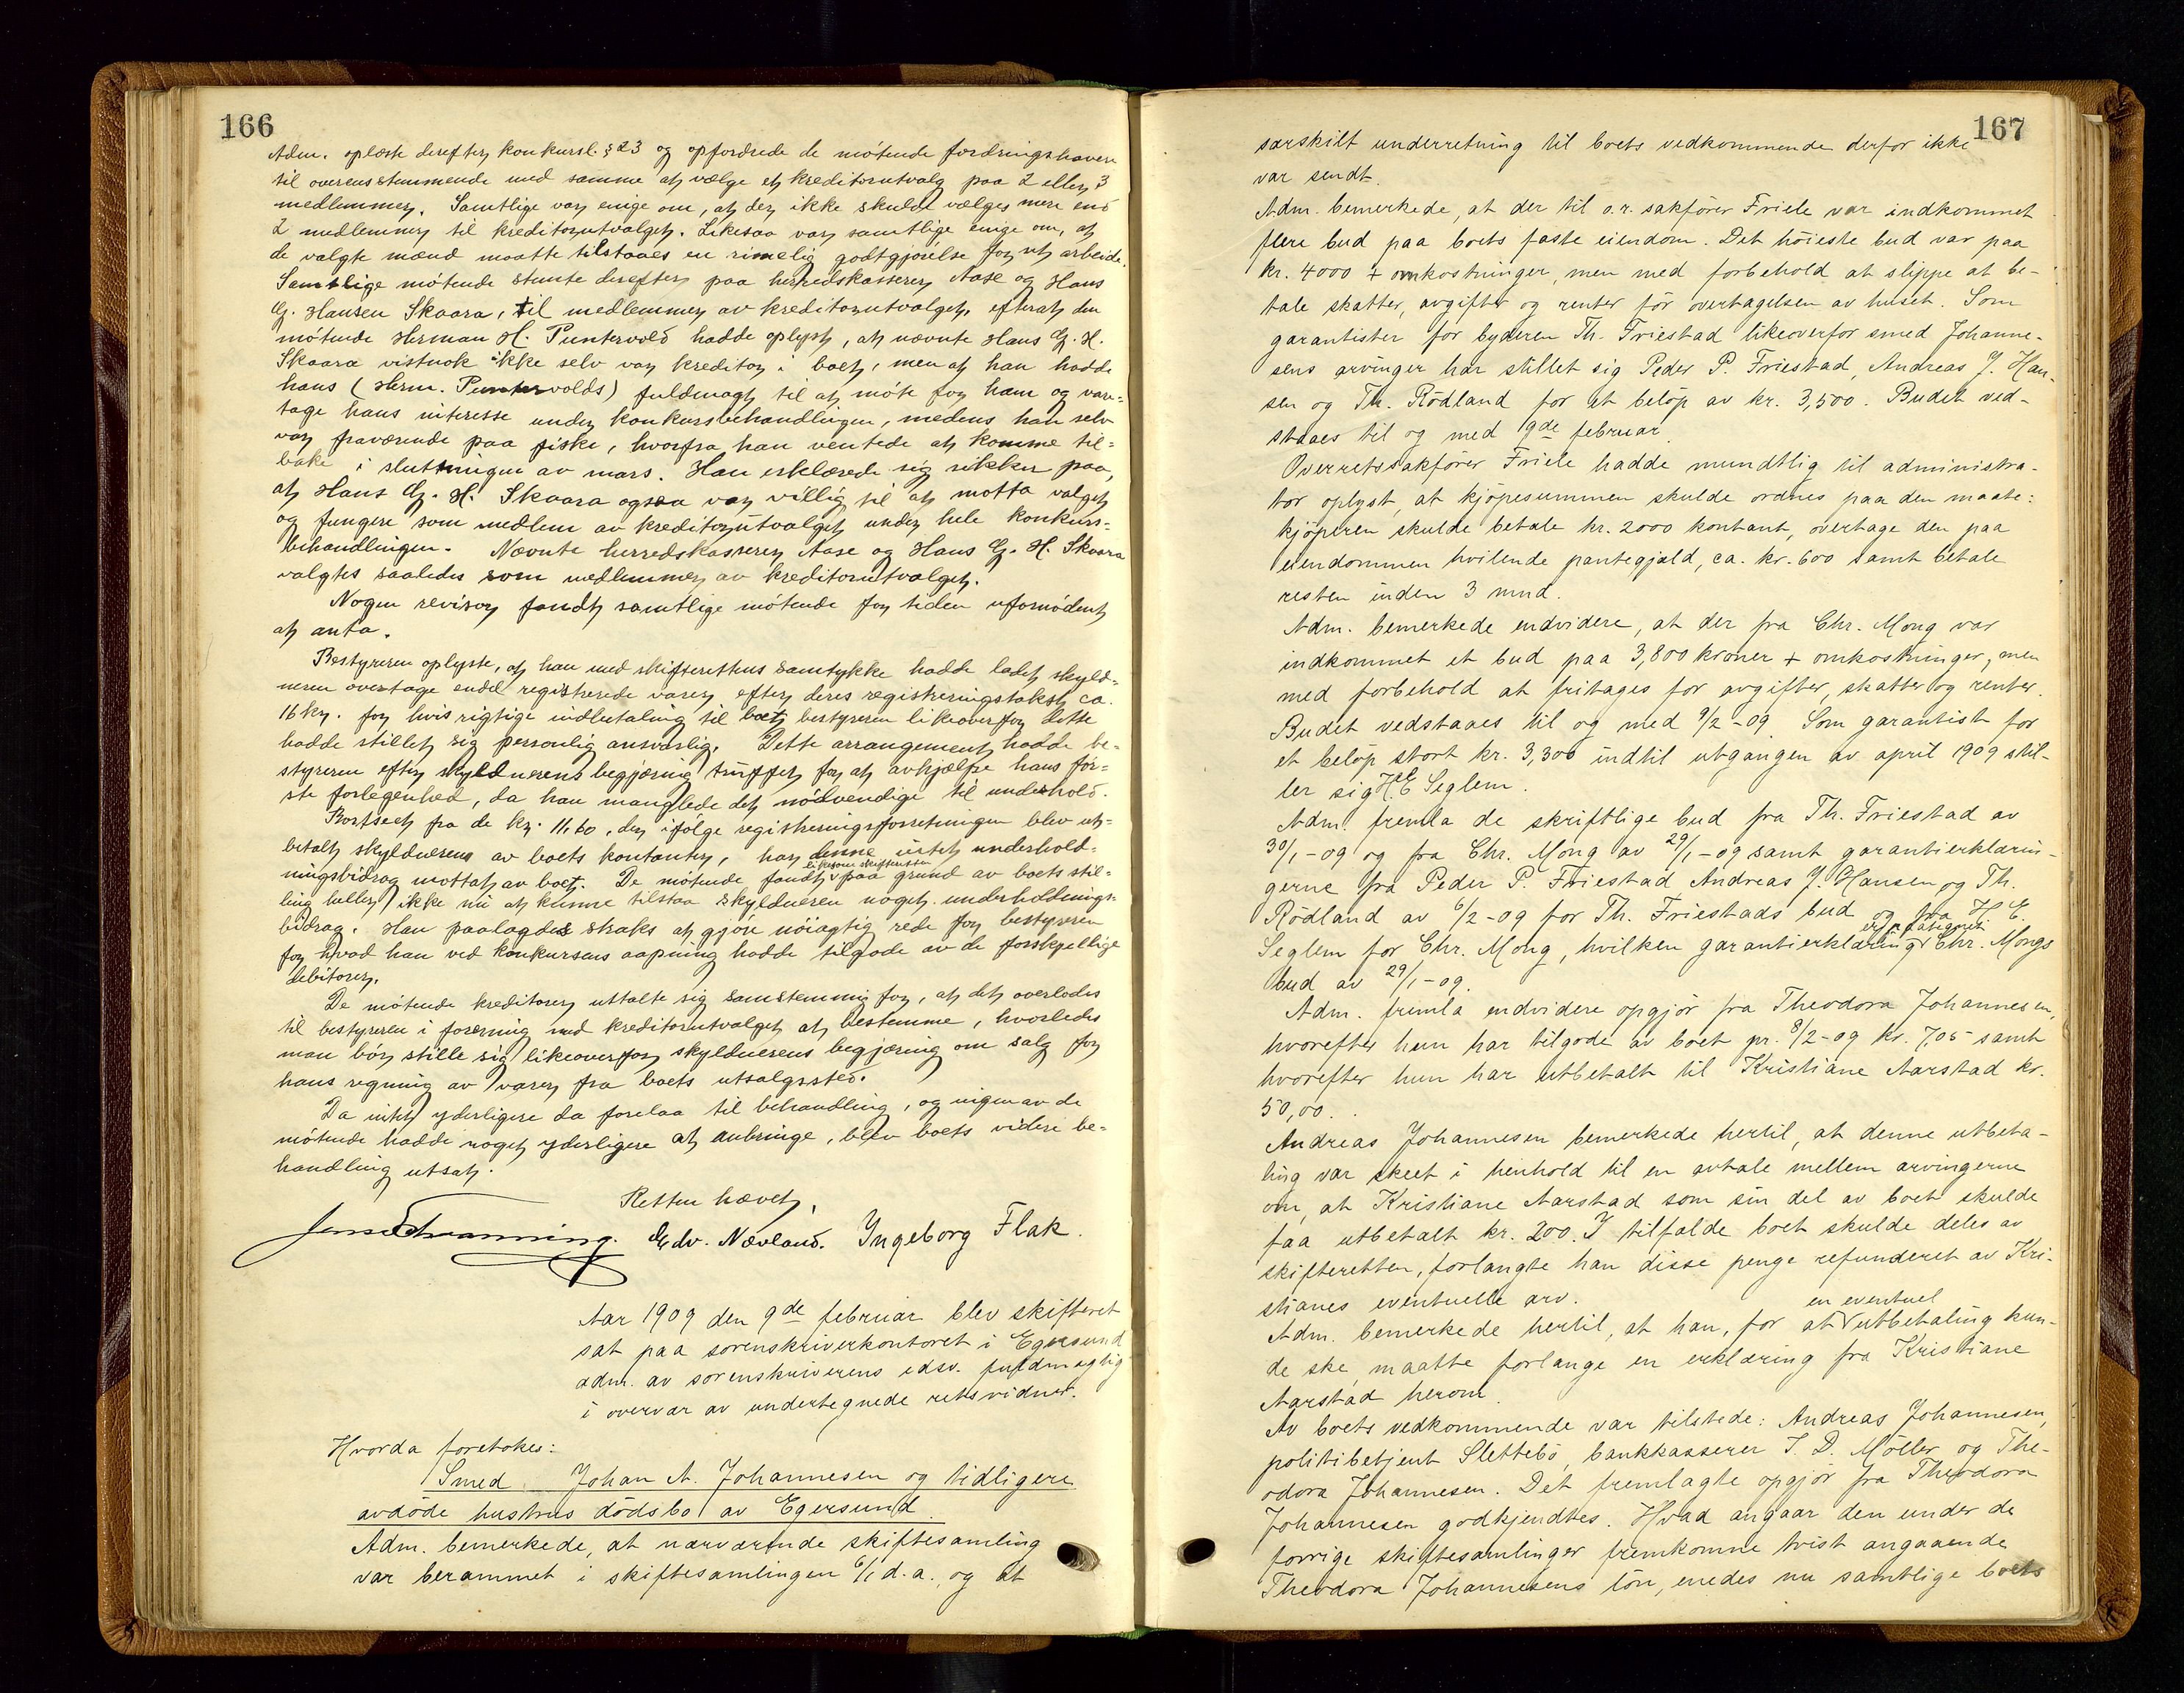 166
Adm. oplæste derefter konkursl. § 23 og opfordrede de møtende fordringshavere
til overensstemmende med samme at vælge et kreditorutvalg paa 2 eller 3
medlemmer. Samtlige var enige om, at der ikke skulde vælges mere end
2 medlemmer til kreditorutvalget. Likesaa var samtlige enige om, at
de valgte mænd maatte tilstaaes en rimelig godtgjørelse for sit arbeide.
Samtlige møtende stemte derefter paa herredskasserer Aase og Hans
G. Hansen Skaara, til medlemmer av kreditorutvalget, efterat den
møtende Herman H. Puntervold hadde oplyst, at nævnte Hans G. H.
Skaara vistnok ikke selv var kreditor i boet, men at han hadde
hans (Herm. Puntervolds) fuldmagt til at møte for ham og vare-
tage hans interesse under konkursbehandlingen, medens han selv
var fraværende paa fiske, hvorfra han ventede at komme til-
bake i slutningen av mars. Han erklærede sig sikker paa,
at Hans G. H. Skaara ogsaa var villig til at motta valget
og fungere som medlem av kreditorutvalget under hele konkurs-
behandlingen. Nævnte herredskasserer Aase og Hans G. H. Skaara
valgtes saaledes som medlemmer av kreditorutvalget.
Nogen revisor fandt samtlige møtende for tiden ufornødent
at anta.
Bestyreren oplyste, at han med skifterettens samtykke hadde ladet skyld-
neren overtage endel registrerede varer efter deres registreringstakst ca.
16 kr. for hvis rigtige indbetaling til boet bestyreren likeoverfor dette
hadde stillet sig personlig ansvarlig. Dette arrangement hadde be-
styreren efter skyldnerens begjæring truffet for at avhjælpe hans før-
ste forlegenhed, da han manglede det nødvendige til underhold.
Bortseet fra de kr. 11,60, der ifølge registreringsforretningen blev ut-
betalt skyldneren av boets kontanter, har denne intet underhold-
ningsbidrag mottat av boet. De møtende fandt likesom skifteretten paa grund av boets stil-
ling heller ikke nu at kunne tilstaa skyldneren noget underholdnings-
bidrag. Han paalagdes straks at gjøre nøiagtig rede for bestyreren
for hvad han ved konkursens aapning hadde tilgode av de forskjellige
debitorer.
De møtende kreditorer uttalte sig samstemmig for, at det overlodes
til bestyreren i forening med kreditorutvalget at bestemme, hvorledes
man bør stille sig likeoverfor skyldnerens begjæring om salg for
hans regning av varer fra boets utsalgssted.
Da intet yderligere da forelaa til behandling, og ingen av de
møtende hadde noget yderligere at anbringe, blev boets videre be-
handling utsat.
Retten hævet.
Edv. Nævland. Ingeborg Flak.
Aar 1909 den 9de februar blev skifteret
sat paa sorenskriverkontoret i Egersund
adm. av sorenskriverens edsv. fuldmægtig
i overvær av undertegnede retsvidner.
Hvorda foretokes:
Smed Johan A. Johannesen og tidligere
avdøde hustrus dødsbo av Egersund.
Adm. bemerkede, at nærværende skiftesamling
var berammet i skiftesamlingen 6/1 d.a., og at
167
særskilt underretning til boets vedkommende derfor ikke
var sendt.
Adm. bemerkede, at der til o.r. sakfører Friele var indkommet
flere bud paa boets faste eiendom. Det høieste bud var paa
kr. 4000 + omkostninger, men med forbehold at slippe at be-
tale skatter, avgifter og renter før overtagelsen av huset. Som
garantister for byderen Th. Friestad likeoverfor smed Johanne-
sens arvinger har stillet sig Peder P. Friestad, Andreas J. Han-
sen og Th. Rødland for et beløp av kr. 3,500. Budet ved-
staaes til og med 9de februar.
Overretssakfører Friele hadde mundtlig til administra-
tor oplyst, at kjøpesummen skulde ordnes paa den maate:
kjøperen skulde betale kr. 2000 kontant, overtage den paa
eiendommen hvilende pantegjæld, ca. kr. 600 samt betale
resten inden 3 mnd.
Adm. bemerkede endvidere, at der fra Chr. Mong var
indkommet et bud paa 3,800 kroner + omkostninger, men
med forbehold at fritages for avgifter, skatter og renter.
Budet vedstaaes til og med 9/2-09. Som garantist for
et beløp stort kr. 3,300 indtil utgangen av april 1909 stil-
ler sig H. E. Seglem.
Adm. fremla de skriftlige bud fra Th. Friestad av
30/1-09 og fra Chr. Mong av 29/1-09 samt garantierklærin-
gerne fra Peder P. Friestad Andreas J. Hansen og Th.
Rødland av 6/2-09 for Th. Friestads bud og fra H. E.
Seglem for Chr. Mong, hvilken garantierklæring er paategnet Chr. Mongs
bud av 29/1-09.
Adm. fremla endvidere opgjør fra Theodora Johannesen,
hvorefter hun har tilgode av boet pr. 8/2-09 kr. 7,05 samt
hvorefter hun har utbetalt til Kristiane Aarstad kr.
50,00.
Andreas Johannesen bemerkede hertil, at denne utbeta-
ling var skeet i henhold til en avtale mellem arvingerne
om, at Kristiane Aarstad som sin del av boet skulde
faa utbetalt kr. 200. I tilfælde boet skulde deles av
skifteretten, forlangte han disse penge refunderet av Kri-
stianes eventuelle arv.
Adm. bemerkede hertil, at han, for at en eventuel utbetaling kun-
de ske, maatte forlange en erklæring fra Kristiane
Aarstad herom.
Av boets vedkommende var tilstede: Andreas Johannesen,
politibetjent Slettebø, bankkasserer J. D. Møller og The-
odora Johannesen. Det fremlagte opgjør fra Theodora
Johannesen godkjendtes. Hvad angaar den under de
forrige skiftesamlinger fremkomne tvist angaaende
Theodora Johannesens løn, enedes nu samtlige boets